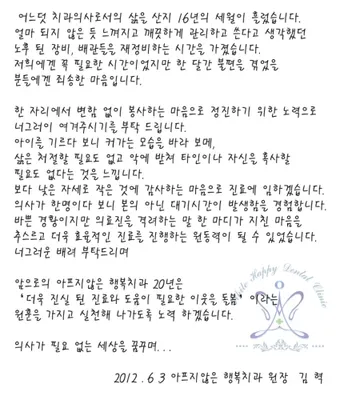 어느덧 치과의사로서의 삶을 산지 16년의 세월이 흘렀습니다.
얼마 되지 않은 듯 느껴지고 깨끗하게 관리하고 쓴다고 생각했던
노후 된 장비, 배관들을 재정비하는 시간을 가졌습니다.
저희에겐 꼭 필요한 시간이었지만 한 달간 불편을 겪었을
분들에겐 죄송한 마음입니다.
한 자리에서 변함 없이 봉사하는 마음으로 정진하기 위한 노력으로
너그러이 여겨주시기를 부탁 드립니다.
아이를 기르다 보니 커가는 모습을 바라 보메,
삶은 처절할 필요도 없고 악에 받쳐 타인이나 자신을 혹사할
필요도 없다는 것을 느낍니다.
보다 낮은 자세로 작은 것에 감사하는 마음으로 진료에 임하겠습니다.
의사가 한명이다 보니 본의 아닌 대기시간이 발생함을 경험합니다.
바쁜 경황이지만 의료진을 격려하는 말 한 마디가 지친 마음을
추스르고 더욱 효율적인 진료를 진행하는 원동력이 될 수 있겠습니다.
너그러운 배려 부탁드리며
앞으로의 아프지않은 행복치과 20년은
'더욱 진실 된 진료와 도움이 필요한 이웃을 돌봄' 이라는
원훈을 가지고 실천해 나가도록 노력 하겠습니다.
의사가 필요 없는 세상을 꿈꾸며...
2012. 6 3 아프지않은 행복치과 원장 김 혁
Happy Dental Clinic